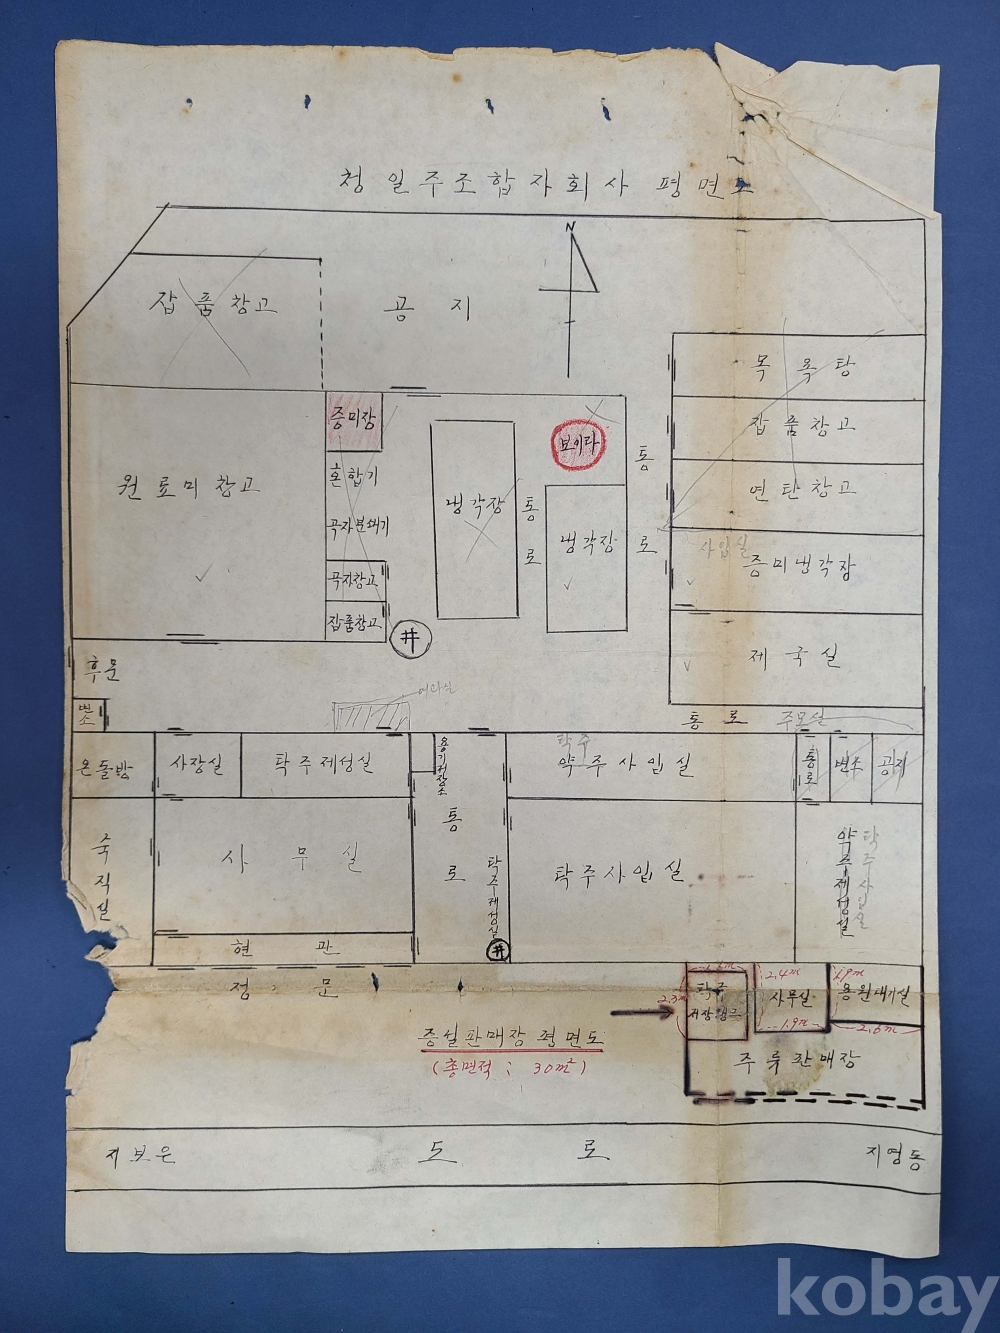 청일주조합자회사 평면도
N
잡품창고
공지
목욕탕
증미장
보이다
통로
잡품창고
원료미창고
혼합기
냉각장
통로
냉각장
연탄창고
곡자분쇄기
사입실
증미냉각장
곡자창고
잡품창고
井
제국실
후문
변소
여과실
통로
주모실
온돌방
사장실
탁주제성실
용기저장소
탁주
약주사입실
통로
변소
공지
숙직실
사무실
통로
탁주제성실
탁주사입실
약주제성실
탁주사입실
현관
井
정문
탁주
저장탱크
2.3m
2.4m
사무실
1.9m
1.9m
용원대기실
2.6m
증설판매장 평면도
(총면적; 30m²)
주류판매장
지보은
도로
지영동
kobay